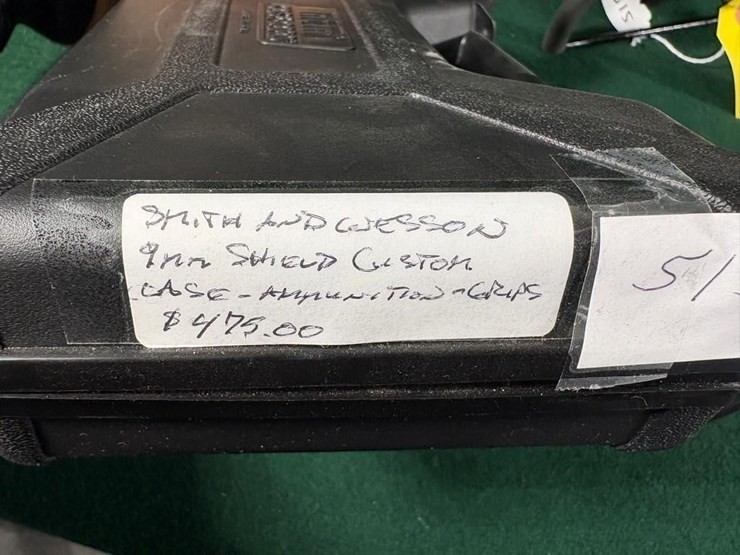 SMITH AND WESSON
9mm SHIELD CUSTOM
CASE - AMMUNITION - GRIPS
$475.00
51